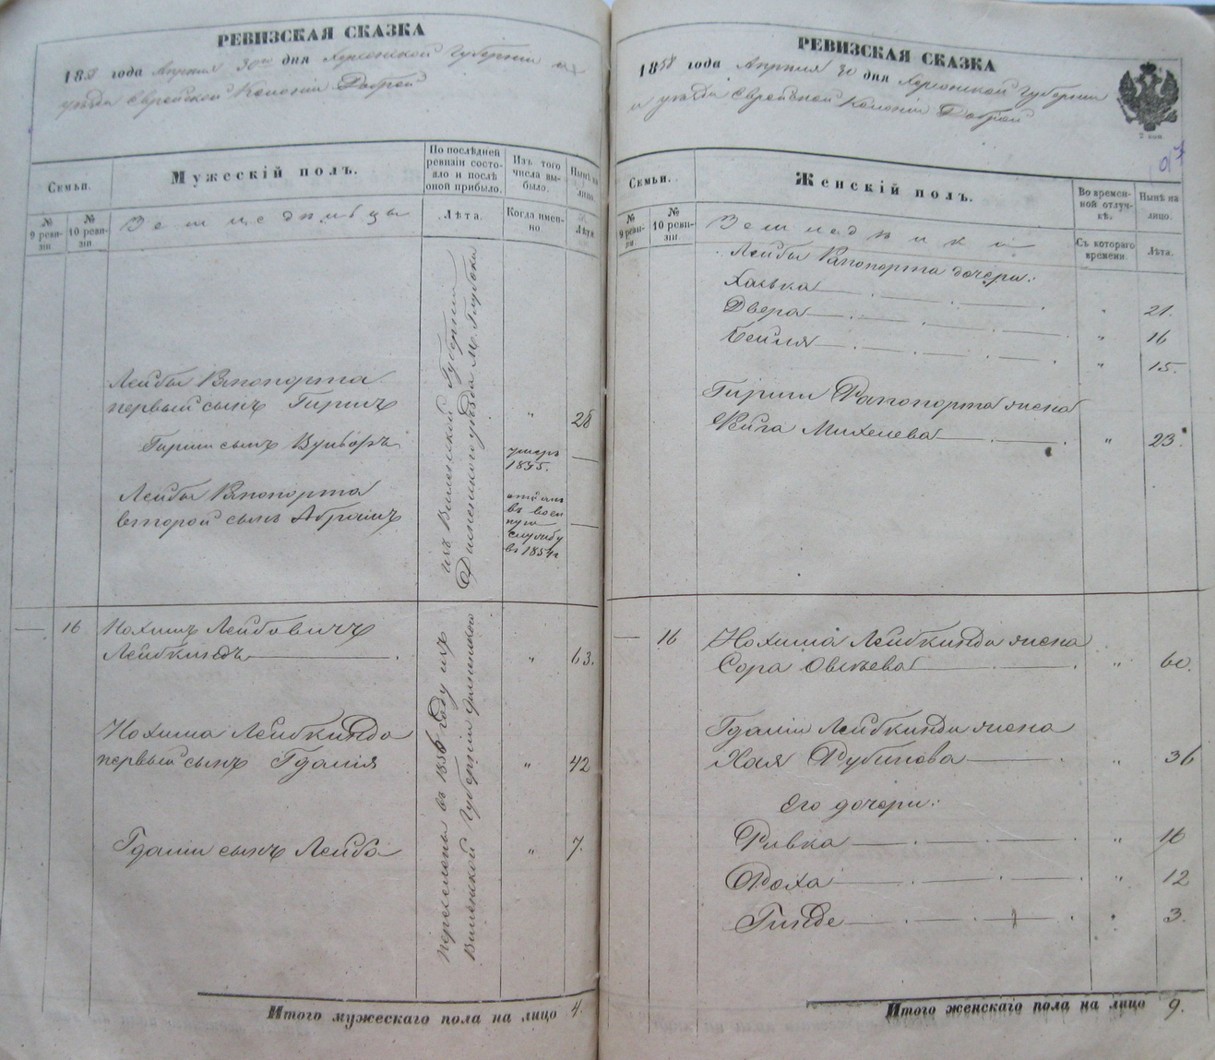 РЕВИЗСКАЯ СКАЗКА
1858 года Апреля 30го дня Херсонской Губернии и
уезда Еврейской Колонии Доброй
Семьи.
№ 9 ревизіи.
№ 10 ревизіи.
Мужескій полъ.
Земледѣльцы
По послѣдней ревизіи состояло и послѣ оной прибыло.
Лѣта.
Изъ того числа выбыло.
Когда именно.
Нынѣ на лицо.
Лѣта.
Лейбы Рапопорта
первый сынъ Гиршъ " 28
Гирши сынъ Вульфъ умеръ 1855. —
Лейбы Рапопорта
второй сынъ Абрамъ
отдан
въ воен
ную
службу
въ 1854г —
изъ Виленской Губерніи
Дисненскаго уѣзда М. Глубокое
— 16 Нохимъ Лейбовичъ
Лейбкиндъ " 63.
Нохима Лейбкинда
первый сынъ Гдалія " 42
Гдаліи сынъ Лейба " 7.
Переселены въ 1856 году изъ
Виленской Губерніи
Итого мужескаго пола на лицо 4.
РЕВИЗСКАЯ СКАЗКА
1858 года Апреля 30 дня Херсонской Губерніи
и уезда Еврейской Колоніи Доброй
97
Семьи.
№ 9 ревизіи.
№ 10 ревизіи.
Женскій полъ.
Во временной отлучкѣ.
Съ котораго времени.
Нынѣ на лицо.
Лѣта.
Лейбы Рапопорта дочери:
Хаська " 21.
Двера " 16
Бейля " 15.
Гирши Рапопорта жена
Фейга Михелева " 23.
— 16 Нохима Лейбкинда жена
Сора " 60.
Гдаліи Лейбкинда жена
Хая Рубинова " 36
Его дочери:
Ривка " 16
Роха " 12
Гинде " 3.
Итого женскаго пола на лицо 9.